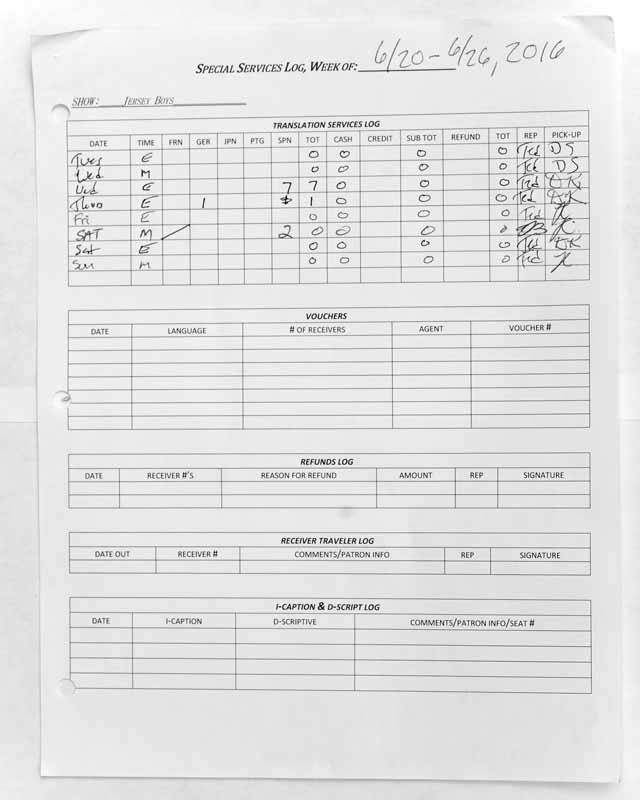 SPECIAL SERVICES LOG, WEEK OF: 6/20-6/26, 2016
SHOW: JERSEY BOYS
TRANSLATION SERVICES LOG
DATE TIME FRN GER JPN PTG SPN TOT CASH CREDIT SUB TOT REFUND TOT REP PICK-UP
Tues E 0 0 0 0 Ted DS
Wed M 0 0 0 0 Ted DS
Wed E 7 7 0 0 0 Ted DK
Thurs E 1 1 0 0 0 Ted DK
Fri E 0 0 0 0 Ted
SAT M 2 0 0 0 0
Sat E 0 0 0 0 Ted DK
Sun M 0 0 0 0 Ted
VOUCHERS
DATE LANGUAGE # OF RECEIVERS AGENT VOUCHER #
REFUNDS LOG
DATE RECEIVER #'S REASON FOR REFUND AMOUNT REP SIGNATURE
RECEIVER TRAVELER LOG
DATE OUT RECEIVER # COMMENTS/PATRON INFO REP SIGNATURE
I-CAPTION & D-SCRIPT LOG
DATE I-CAPTION D-SCRIPTIVE COMMENTS/PATRON INFO/SEAT #